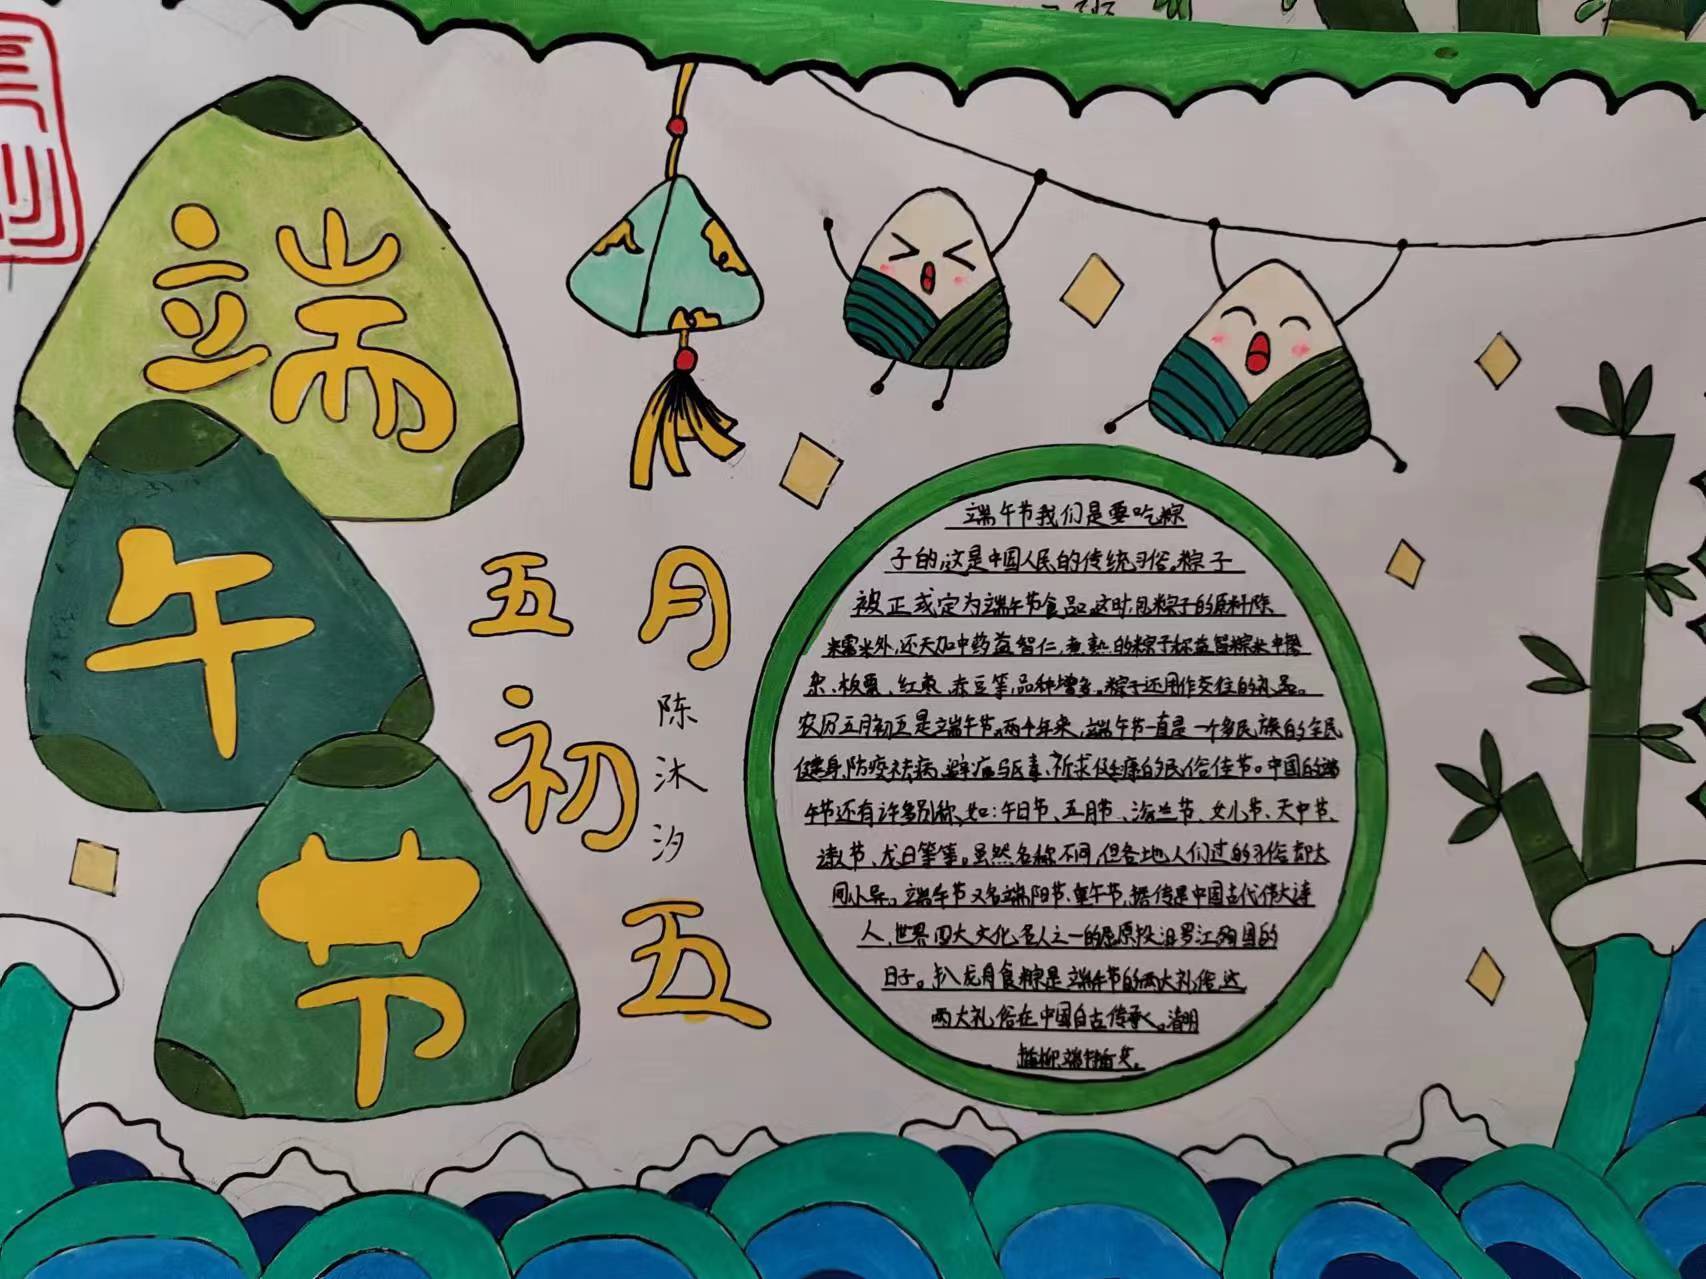 端
午
节
五月
初
五
陈
沐
汐
端午节我们是要吃粽
子的,这是中国人民的传统习俗。粽子
被正式定为端午节食品。这时,包粽子的原料除
糯米外,还天加中药益智仁,煮熟的粽子称益智粽米中
板栗、红枣、赤豆等,品种增多。粽子还用作交往的礼品。
农历五月初五是端午节。两千年来,端午节一直是一个多民族的全民
健身,防疫祛病、避瘟驱毒、祈求健康的民俗佳节。中国的端
午节还有许多别称、如:午日节、五月节、浴兰节、女儿节、天中节、
节、龙日等等。虽然名称不同,但各地人们过的习俗却大
同小异。端午节又名端阳节、重午节,据传是中国古代伟大诗
人、世界四大文化名人之一的屈原投汨罗江殉国的
日子。扒龙舟食粽是端午节的两大礼俗,这
两大礼俗在中国自古传承。清明
插柳,端午插艾。